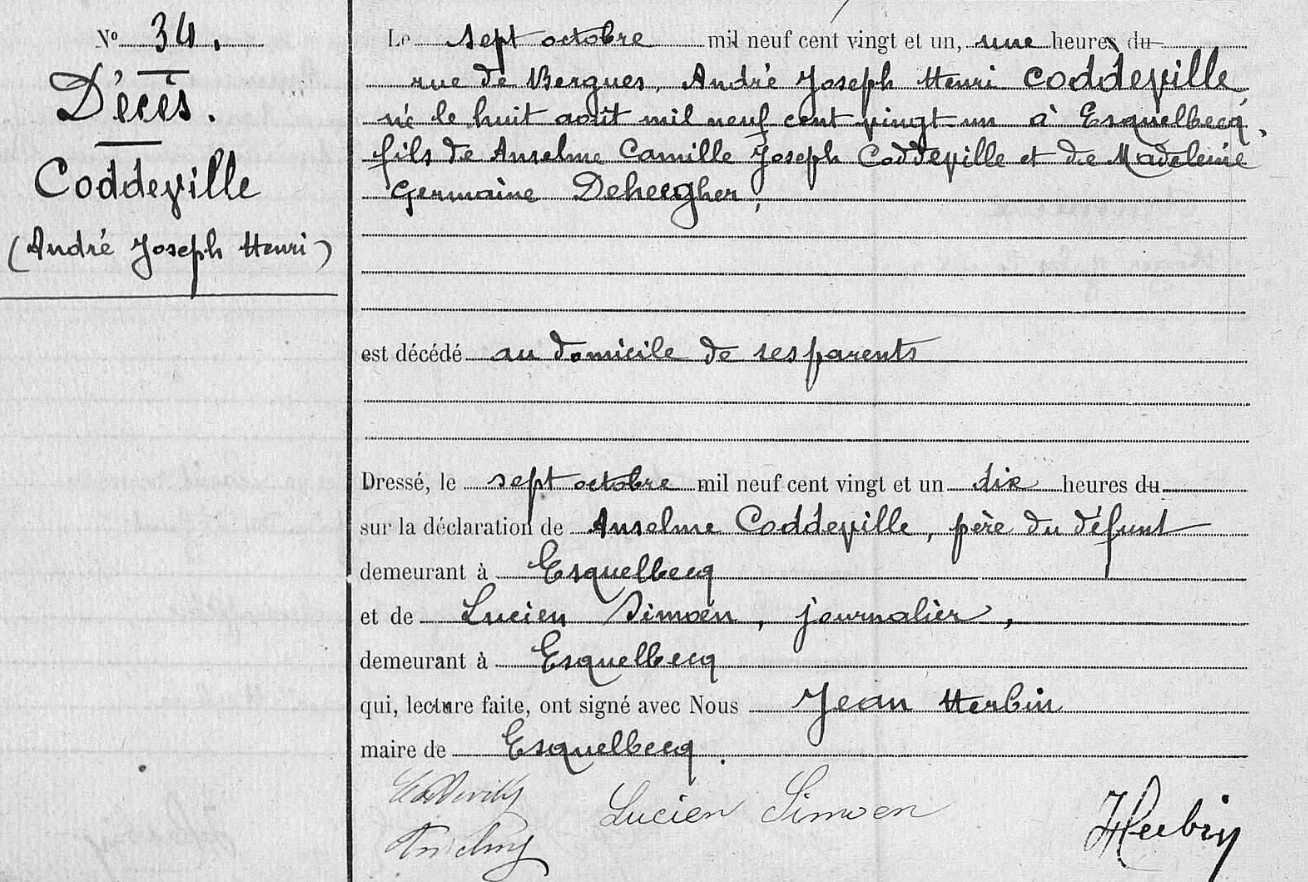 Nº 34.
Décès
Coddeville
(André Joseph Henri)
Le sept octobre mil neuf cent vingt et un, une heures du
rue de Bergues, André Joseph Henri Coddeville,
né le huit août mil neuf cent vingt-un à Esquelbecq,
fils de Anselme Camille Joseph Coddeville et de Madeleine
Germaine Deheegher,
est décédé au domicile de ses parents
Dressé, le sept octobre mil neuf cent vingt et un dix heures du
sur la déclaration de Anselme Coddeville, père du défunt
demeurant à Esquelbecq
et de Lucien Simoen, journalier,
demeurant à Esquelbecq
qui, lecture faite, ont signé avec Nous Jean Herbin
maire de Esquelbecq.
Lucien Simoen
JHerbin